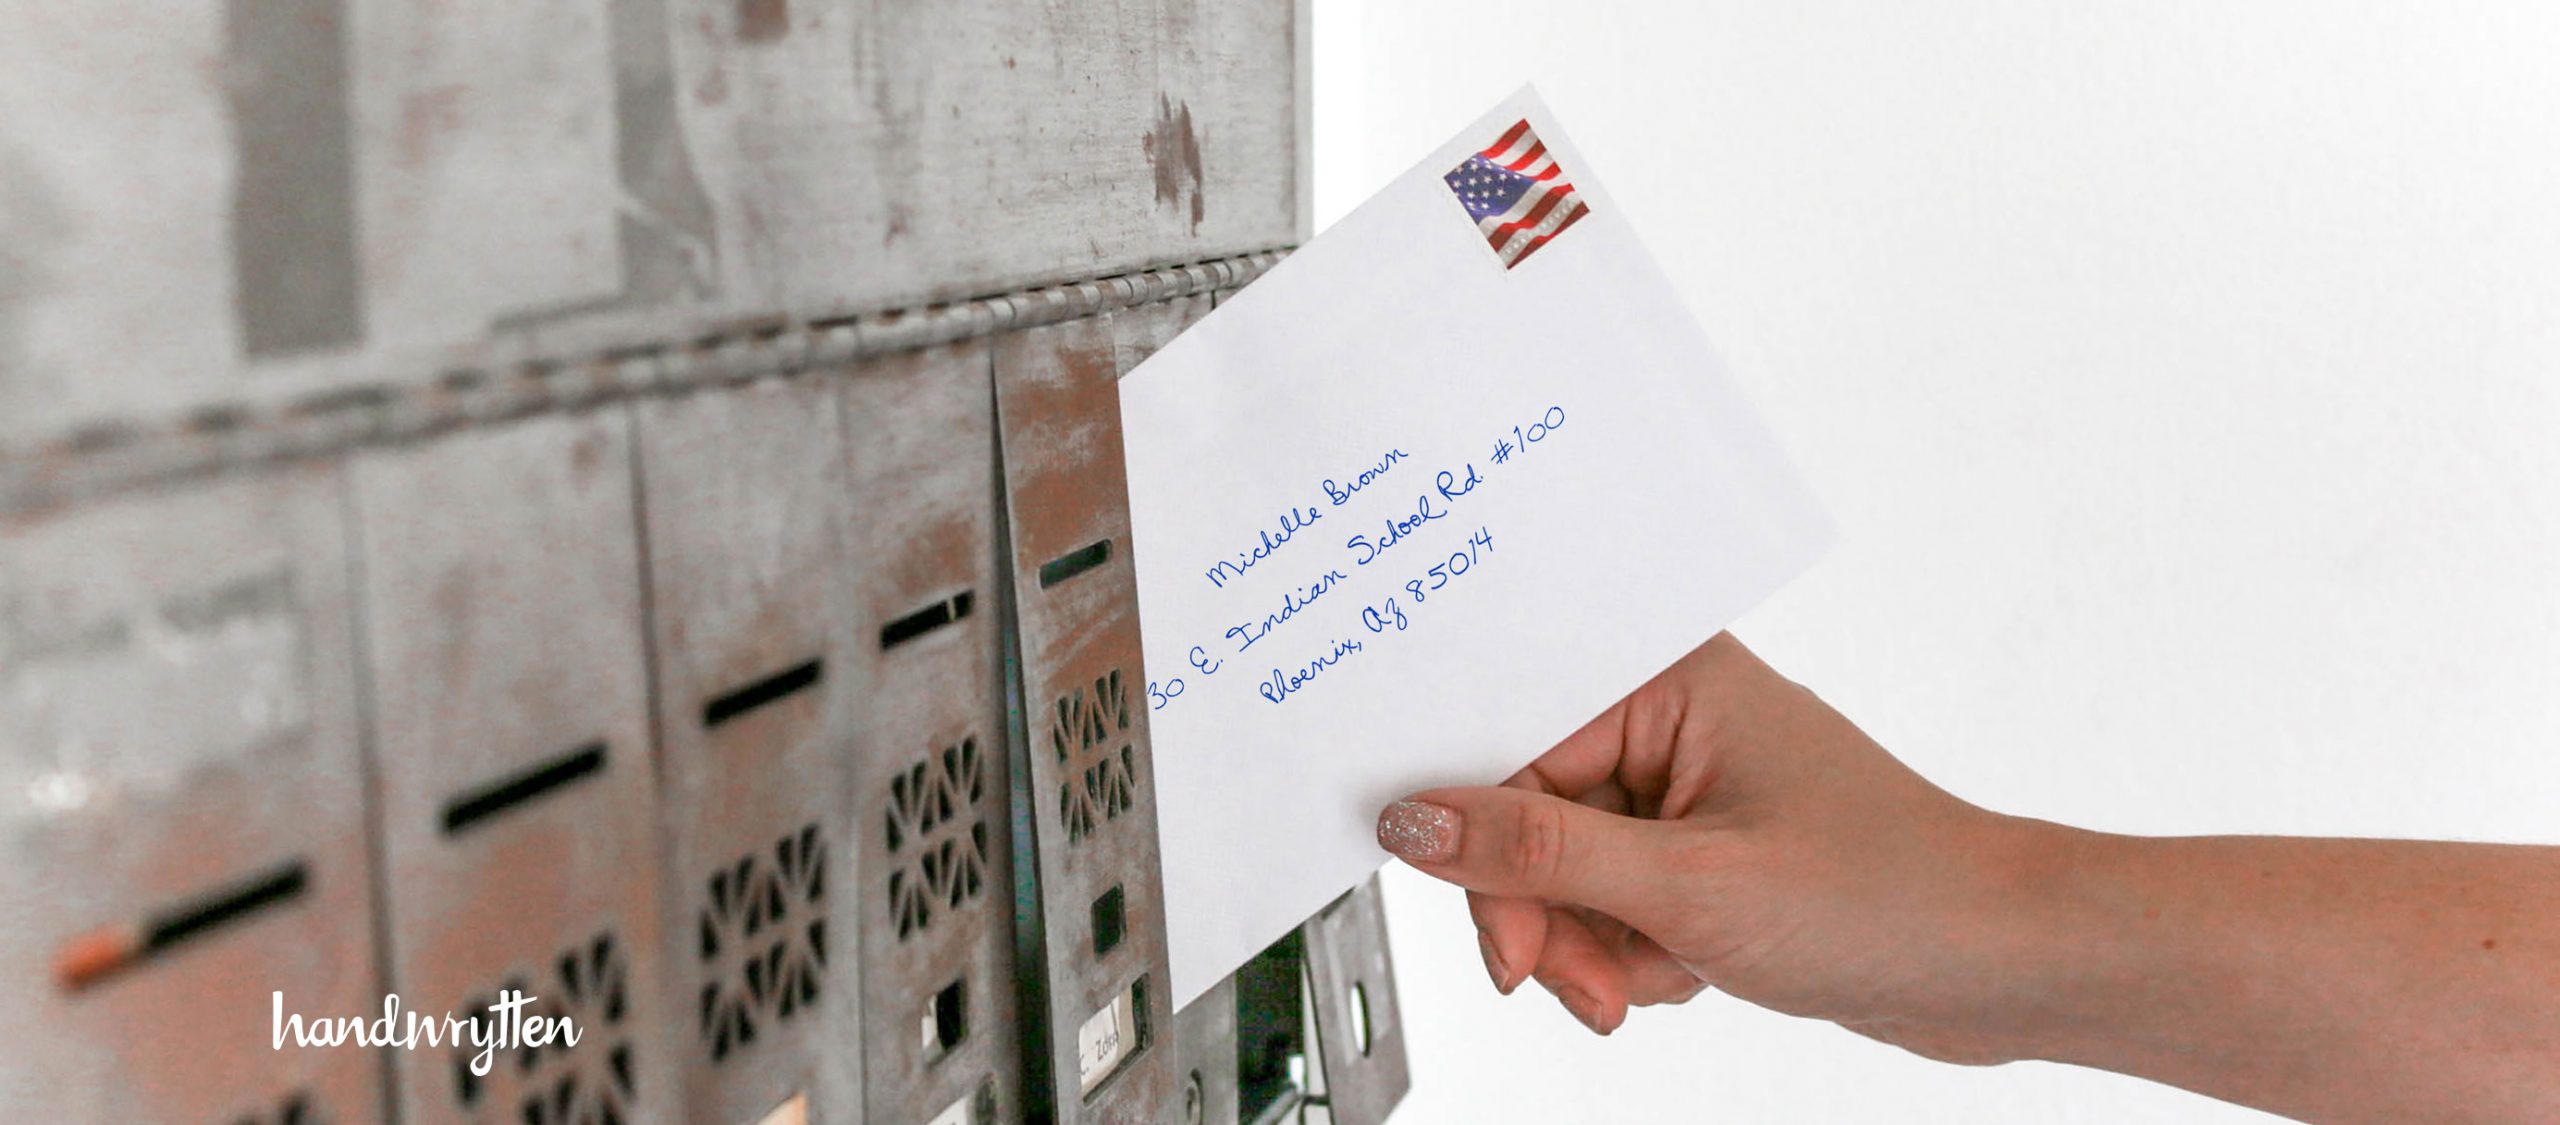 Michelle Brown
30 E. Indian School Rd. #100
Phoenix, AZ 85014
C. Zora
handwrytten